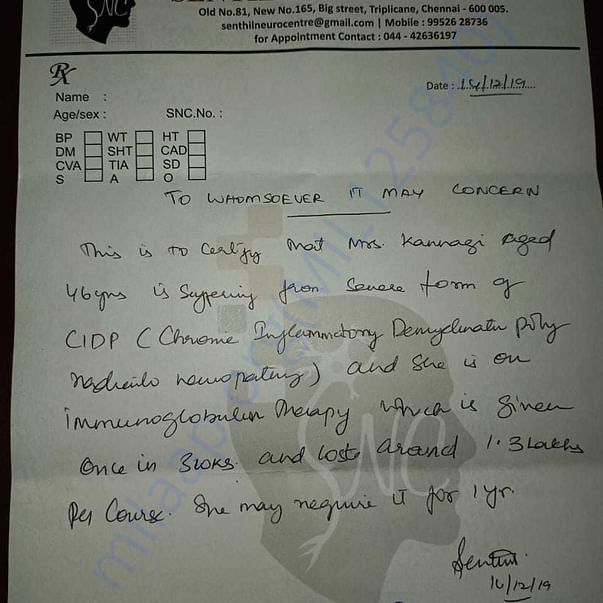 SNC
Old No.81, New No.165, Big street, Triplicane, Chennai - 600 005.
senthilneurocentre@gmail.com | Mobile : 99526 28736
for Appointment Contact : 044 - 42636197
Rx
Date : 14/12/19
Name :
Age/sex : SNC.No. :
BP WT HT
DM SHT CAD
CVA TIA SD
S A O
TO WHOMSOEVER IT MAY CONCERN
This is to certify that Mrs. Kannagi aged
46yrs is suffering from severe form of
CIDP (Chronic Inflammatory Demyelinatin poly
neuropathy) and she is on
immunoglobulin therapy which is given
once in 3wks. and costs around 1.3 lakhs
per course. She may require it for 1 yr.
14/12/19
SNC